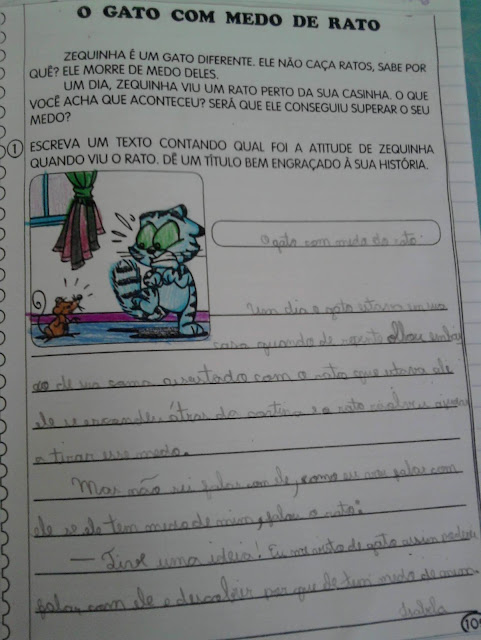 O GATO COM MEDO DE RATO
ZEQUINHA É UM GATO DIFERENTE. ELE NÃO CAÇA RATOS, SABE POR
QUÊ? ELE MORRE DE MEDO DELES.
UM DIA, ZEQUINHA VIU UM RATO PERTO DA SUA CASINHA. O QUE
VOCÊ ACHA QUE ACONTECEU? SERÁ QUE ELE CONSEGUIU SUPERAR O SEU
MEDO?
1 ESCREVA UM TEXTO CONTANDO QUAL FOI A ATITUDE DE ZEQUINHA
QUANDO VIU O RATO. DÊ UM TÍTULO BEM ENGRAÇADO À SUA HISTÓRIA.
O gato com medo do rato.
Um dia o gato estava em sua
casa quando de repente olhou
de sua cama assustado com o rato que estava ali
ele se escondeu átras da cortina e o rato ajudar
a tirar esse medo.
Mas não sei falar com ele, como eu vou falar com
ele se ele tem medo de mim, falou o rato:
— Tive uma ideia! Eu me visto de gato assim
falar com ele e descobrir por que ele tem medo de mim.
Isabela
10